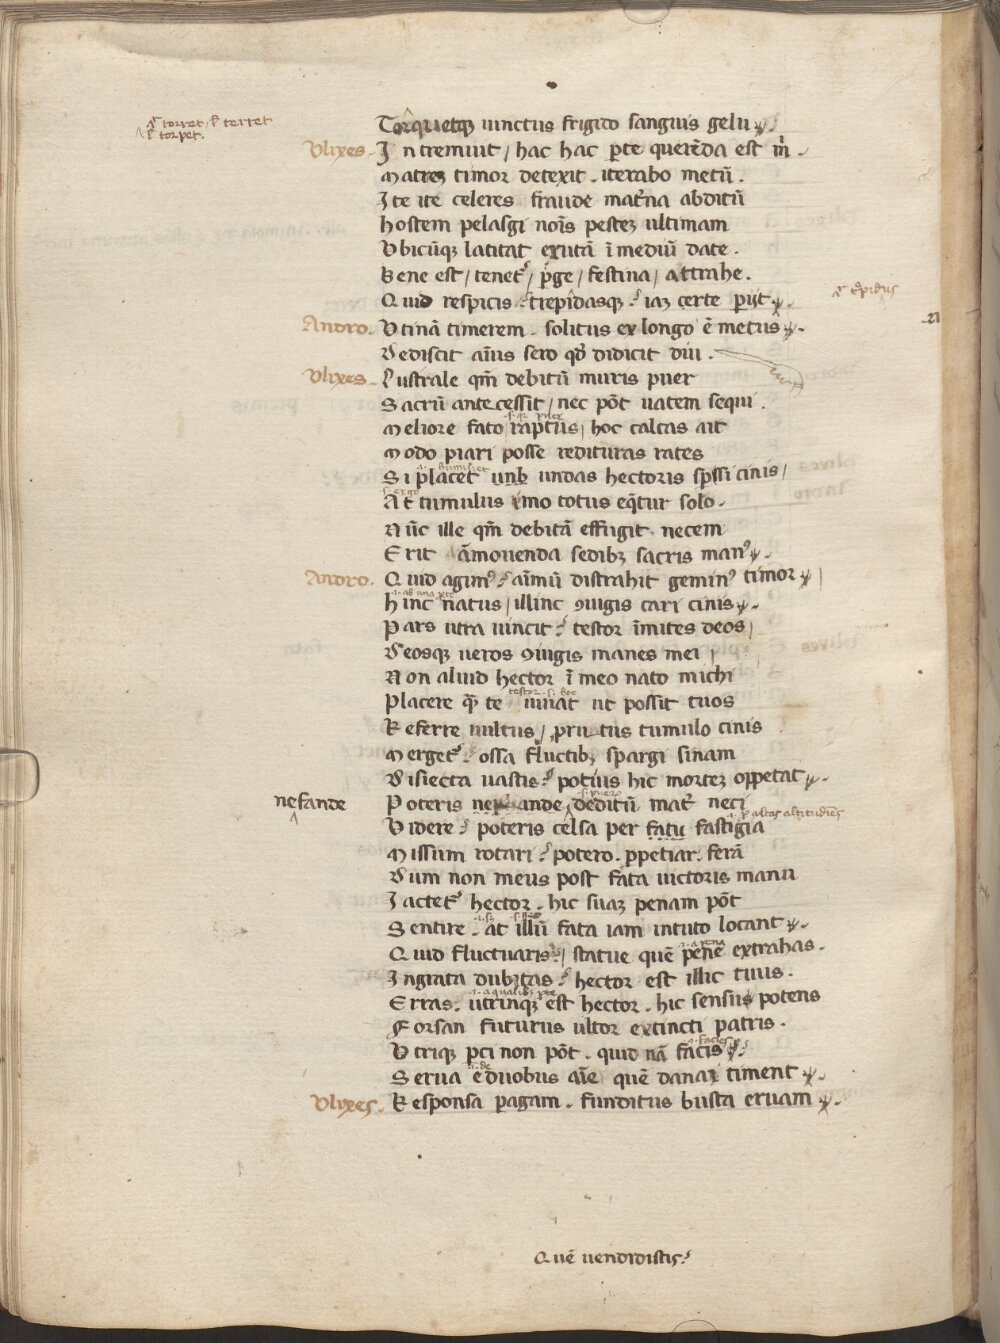 Torquetqꝫ uinctus frigido sanguis gelu
a torret / ł terret
ł torpet.
Vlixes. Intremuit / hac hac ꝑte querēda est m̄
Matreꝫ timor detexit . iterabo metū .
Ite ite celeres fraude mat̄na abditū
hostem pelasgi noīs pesteꝫ ultimam
Vbicūqꝫ latitat exutā ī mediū date .
Bene est / tenet᷒ / ꝑge / festina / attrahe .
Quid respicis trepidasqꝫ iaꝫ certe ꝑijt
Andro. Vtinā timerem . solitus ex longo ē metus
Dediscit aīus sero qd̓ didicit diu .
Vlixes. Lustrale qm̄ debitū muris puer
Sacrū antecessit / nec pōt uatem sequi .
Meliore fato raptus / hoc calcas ait
Modo piari posse redituras rates
Si placet undas hectoris spssi cinis /
At tumulus imo totus eq̄tur solo .
Nūc ille qm̄ debitā effugit necem
Erit āmouenda sedibꝫ sacris man᷒
Andro. Quid agim᷒ aīmū distrahit gemin᷒ timor
hinc natus / illinc ꝯiugis cari cinis
Pars utra uincit testor īmites deos /
Deosqꝫ ueros ꝯiugis manes mei /
Non aliud hector ī meo nato michi
Placere q̄ te uiuat ut possit tuos
Referre uultus / prutus tumulo cinis
Merget᷒ ossa fluctibꝫ spargi sinam
Disiecta uastis potius hic morteꝫ oppetat
nefande
Poteris ande deditū mat̄ neci
Videre poteris celsa per fastigia
Missum rotari potero . ꝑpetiar . ferā
Dum non meus post fata uictoris manu
Iactet᷒ hector . hic suaꝫ penam pōt
Sentire . at illū fata iam in tuto locant
Quid fluctuaris / statue quē pene extrahas .
Ingrata dubitas hector est illic tuus .
Erras . utrinqꝫ est hector . hic sensus potens
Forsan futurus ultor extincti patris .
Vtriqꝫ ꝑci non pōt . quid nā facis
Serua e duobus aīe quē danai timent
Vlixes. Responsa peragam . funditus busta eruam
Quē uendidistis